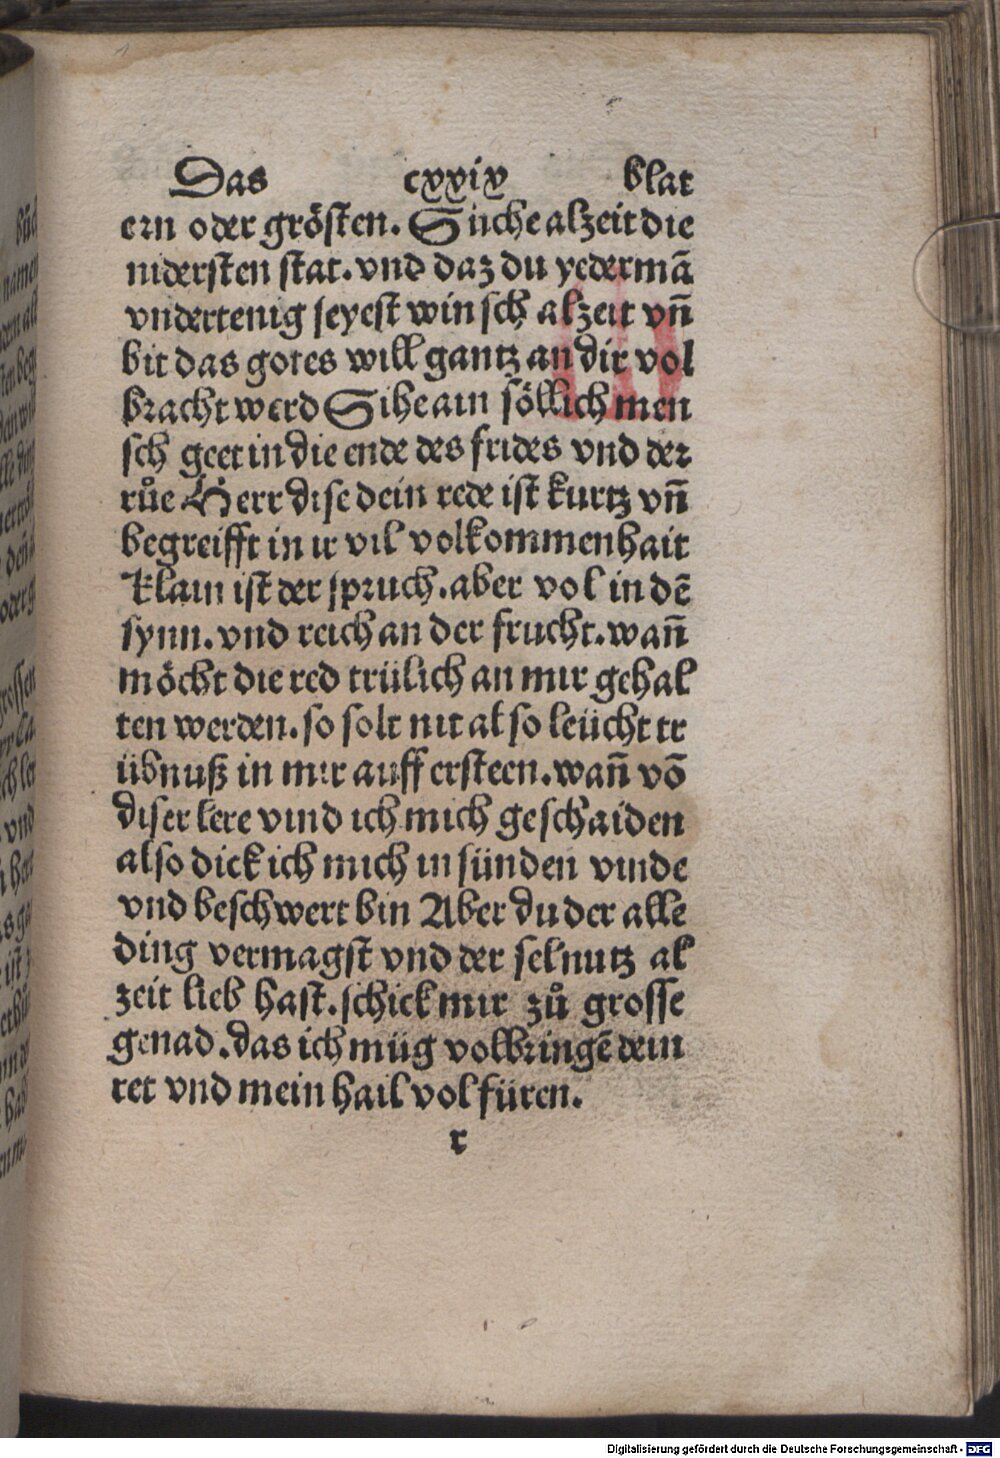 Das cxxix blat
ern oder grösten. Süche alzeit die
nidersten stat. vnd daz du yedermā
vndertenig seyest winsch alzeit vñ
bit das gotes will gantz an dir vol
bracht werd Sihe ain söllich men
sch geet in die ende des frides vnd der
růe Herr dise dein rede ist kurtz vñ
begreifft in ir vil volkommenhait
Klain ist der spruch. aber vol in dē
synn. vnd reich an der frucht. wañ
möcht die red trülich an mir gehal
ten werden. so solt nit also leücht tr
übnuß in mir auff ersteen. wañ vō
diser lere vind ich mich geschaiden
also dick ich mich in sünden vinde
vnd beschwert bin Aber du der alle
ding vermagst vnd der selnutz al
zeit lieb hast. schick mir zů grosse
genad. das ich müg volbringē dein
ret vnd mein hail volfüren.
r
Digitalisierung gefördert durch die Deutsche Forschungsgemeinschaft - DFG